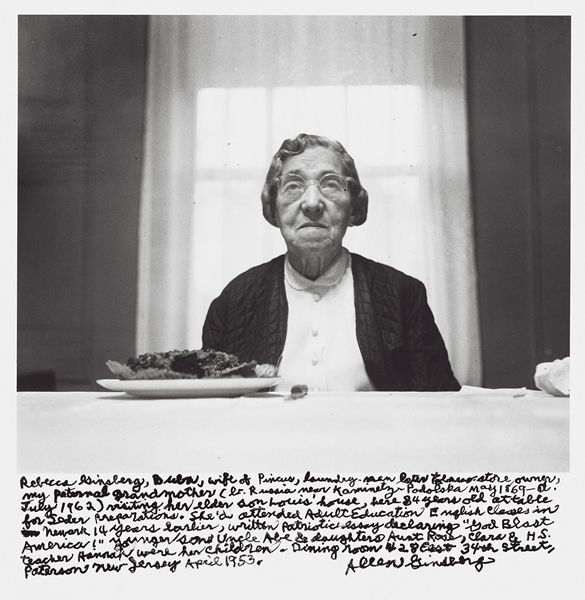 Rebecca Ginsberg, Buba, wife of Pincus, laundry-man later tobacco-store owner,
my paternal grandmother (b. Russia near Kaminetz-Podolska May 1869-d.
July 1962) visiting her elder son Louis' house, here 84 years old at table
for Seder preparations. She'd attended Adult Education English classes in
Newark 14 years earlier, written patriotic essay declaring "God Blast
America!" younger son Uncle Abe & daughters Aunt Rose, Clara & H.S.
teacher Hannah were her children - Dining room 428 East 34th Street,
Paterson New Jersey April 1953.
Allen Ginsberg